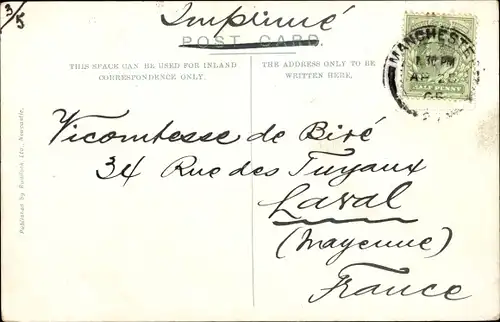 3/5
Imprimé
POST CARD.
THIS SPACE CAN BE USED FOR INLAND
CORRESPONDENCE ONLY.
THE ADDRESS ONLY TO BE
WRITTEN HERE.
MANCHESTER
HALF PENNY
Vicomtesse de Biré
34 Rue des Tuyaux
Laval
(Mayenne)
France
Published by Ltd., Newcastle.